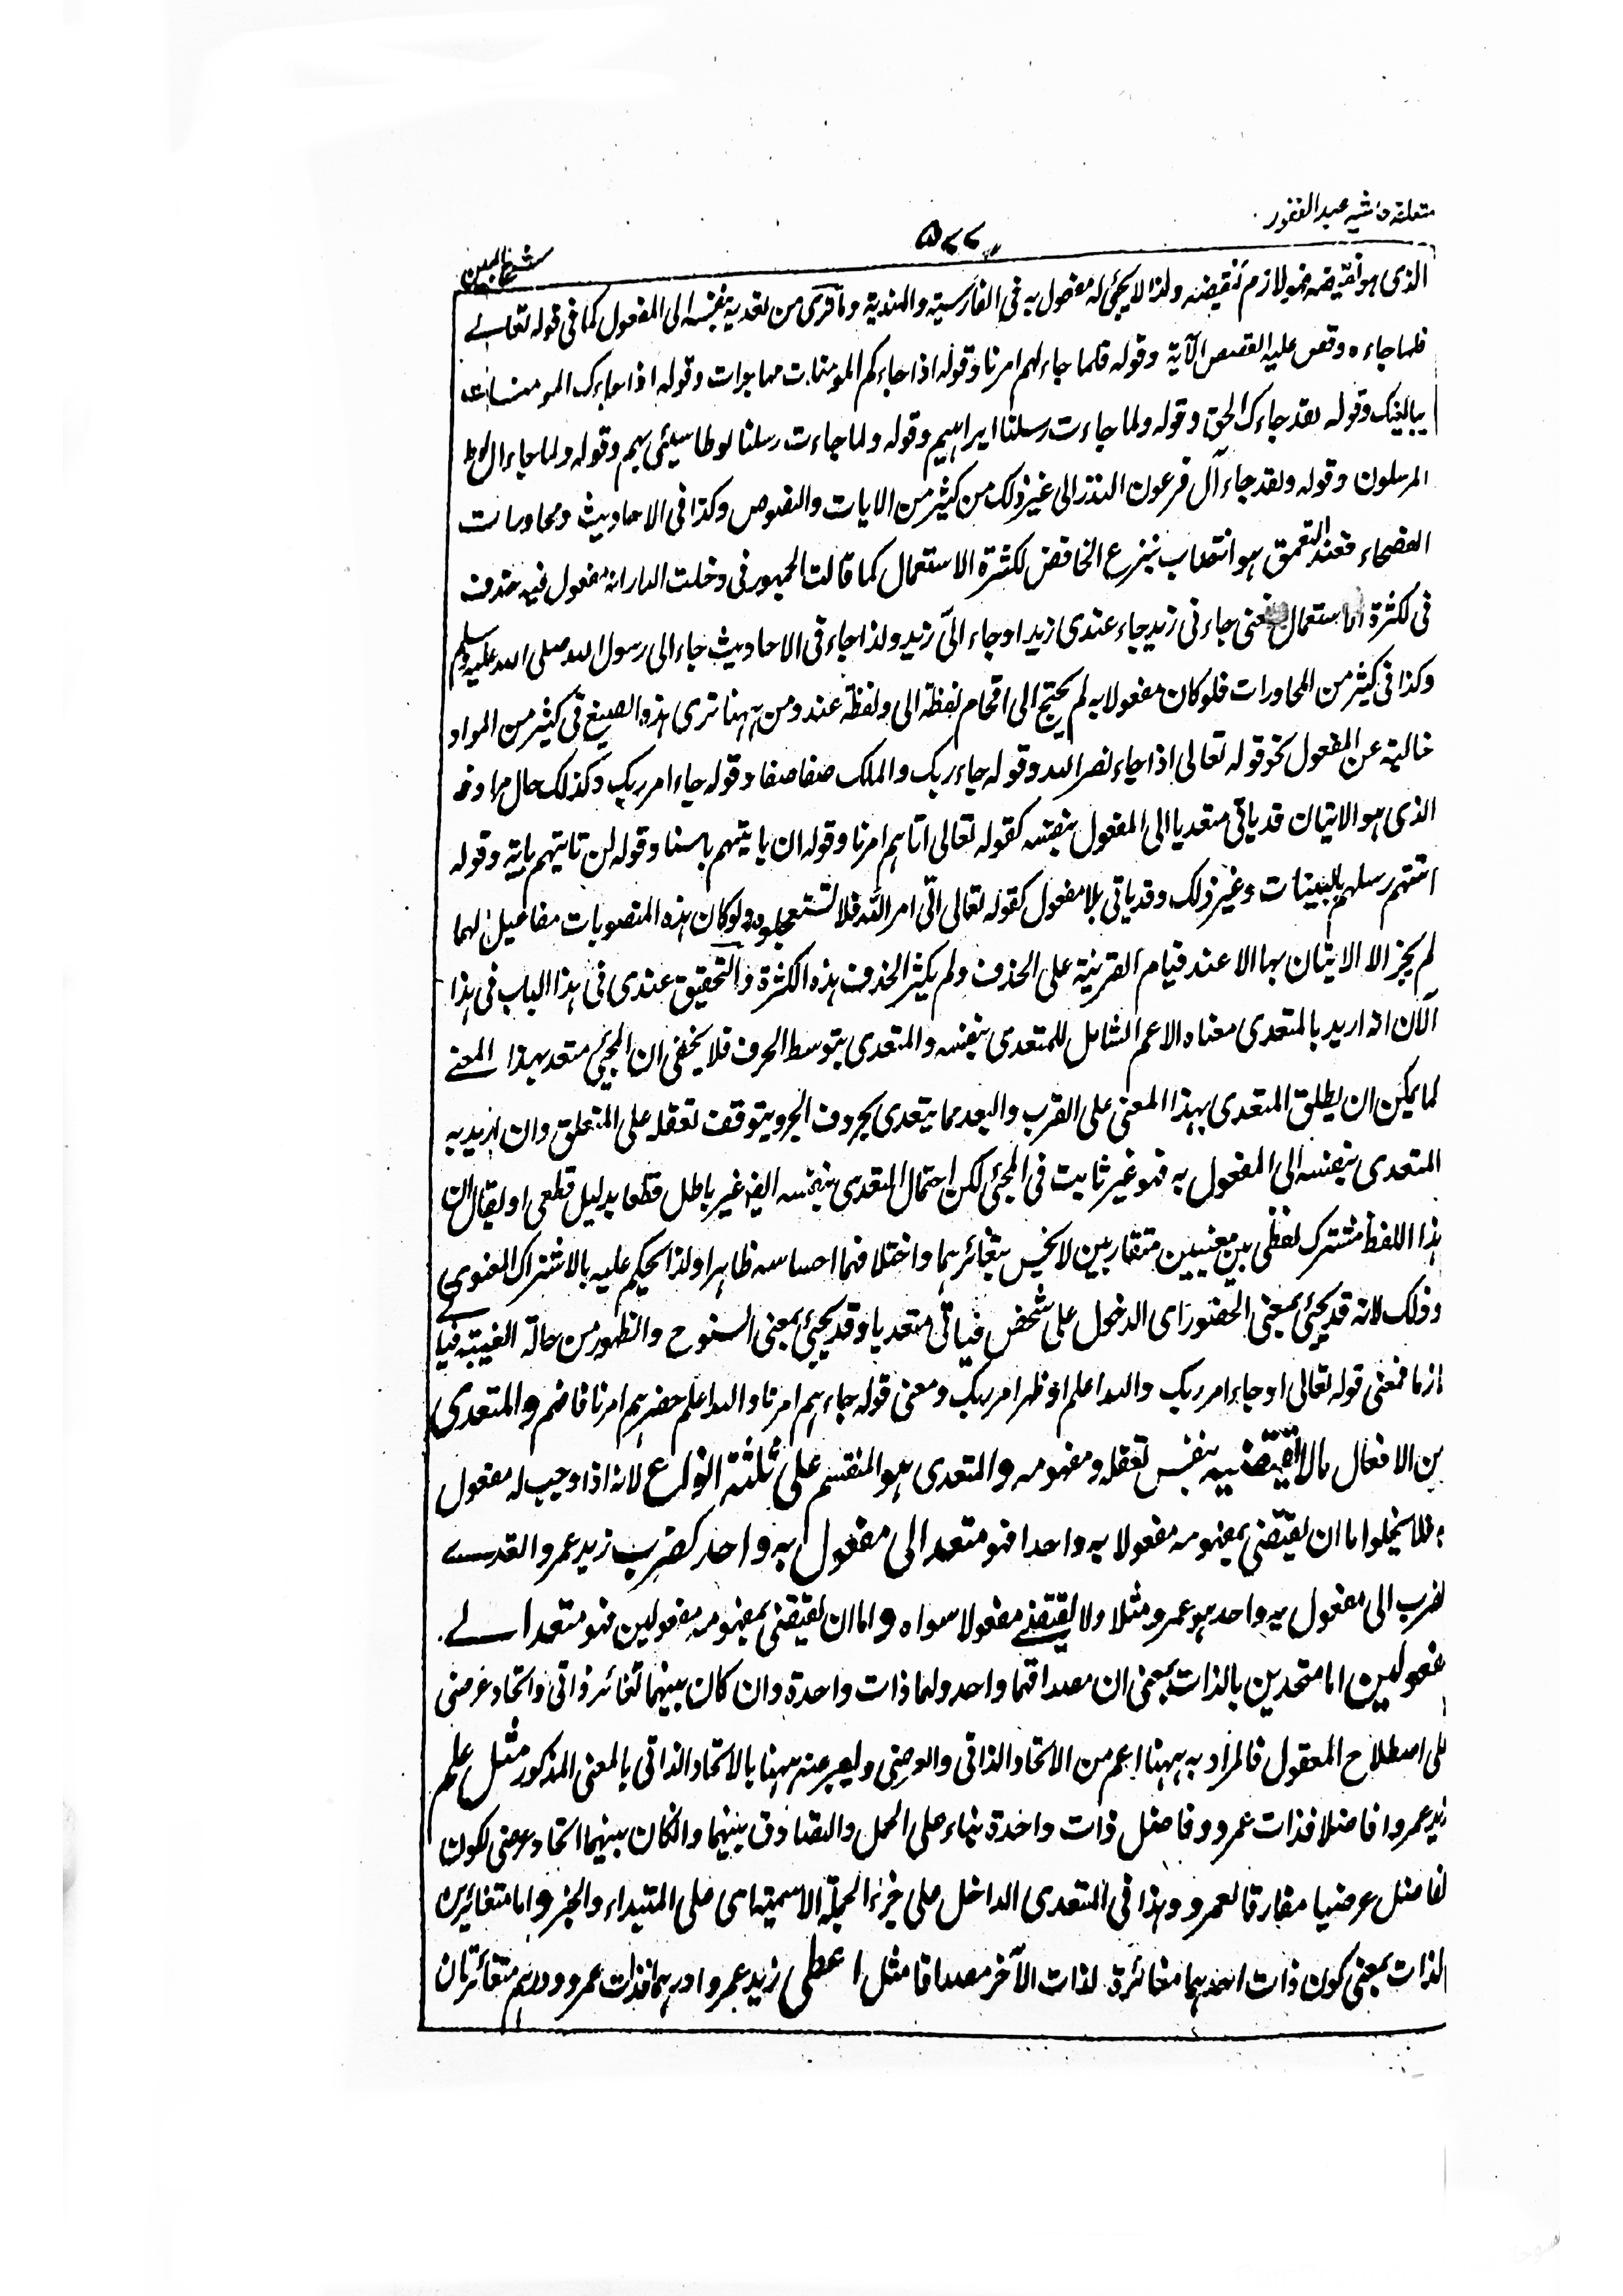 متعلقہ حاشیہ عبد الغفور
٥٧٧
شرح المبین
الذی ہو نقیضہ فہو لازم کنقیضہ ولذا لا یجئی لہ مفعول بہ فی الفارسیۃ والہندیۃ وما تری من تعدیۃ بنفسہ الی المفعول کما فی قولہ تعالے
فلما جاءہ وقص علیہ القصص الآیۃ وقولہ فلما جاء لہم امرنا وقولہ اذا جاءکم المومنات مہاجرات وقولہ اذا جاءک المومنات
یبایعنک وقولہ لقد جاءک الحق وقولہ ولما جاءت رسلنا ابراہیم وقولہ ولما جاءت رسلنا لوطا سیئی بہم وقولہ ولما جاء ال لوط
المرسلون وقولہ ولقد جاء آل فرعون النذر الی غیر ذلک من کثیر من الایات والنصوص وکذا فی الاحادیث ومحاورات
الفصحاء فعند التعمق ہو انتصاب بنزع الخافض لکثرۃ الاستعمال کما قالت الجمہور فی دخلت الدار انہ مفعول فیہ حذف
فی لکثرۃ الاستعمال فمعنی جاءنی زید جاء عندی زید او جاء الیّ زید ولذا جاء فی الاحادیث جاء الی رسول اللہ صلی اللہ علیہ وسلم
وکذا فی کثیر من المحاورات فلو کان مفعولا بہ لم یحتج الی اقحام لفظۃ الی ولفظۃ عند ومن ہہنا تری ہذہ الصیغ فی کثیر من المواد
خالیۃ عن المفعول نحو قولہ تعالی اذا جاء نصر اللہ وقولہ جاء ربک والملک صفا صفا وقولہ جاء امر ربک وکذلک حال مرادفہ
الذی ہو الاتیان قد یاتی متعدیا الی المفعول بنفسہ کقولہ تعالی اتاہم امرنا وقولہ ان یاتیہم باسنا وقولہ لن تاتیہم بایۃ وقولہ
اتتہم رسلہم بالبینات وغیر ذلک وقد یاتی بلا مفعول کقولہ تعالی اتی امر اللہ فلا تستعجلوہ ولو کان ہذہ المنصوبات مفاعیل لہما
لم یجز الا الاتیان بہا الا عند قیام القرینۃ علی الحذف ولم یکثر الحذف ہذہ الکثرۃ والتحقیق عندی فی ہذا الباب فی ہذا
الآن انہ ارید بالمتعدی معناہ الاعم الشامل للمتعدی بنفسہ والمتعدی بتوسط الحرف فلا یخفی ان المجئی متعد بہذا المعنے
لما یمکن ان یطلق المتعدی بہذا المعنی علی القرب والبعد مما یتعدی بحروف الجر ویتوقف تعقلہ علی المتعلق وان ارید بہ
المتعدی بنفسہ الی المفعول بہ فہو غیر ثابت فی المجئی لکن احتمال المتعدی بنفسہ ایضا غیر باطل قطعا بدلیل قطعی او یقال ان
ہذا اللفظ مشترک لفظی بین معنیین متقاربین لا یحس بتغائرہما واختلافہما احساسہ ظاہرا ولذا یحکم علیہ بالاشتراک المعنوی
وذلک لانہ قد یجئی بمعنی الحضور ای الدخول علی شخص فیاتی متعدیا وقد یجئی بمعنی السنوح والظہور من حالۃ الغیبۃ فیاتے
ازما فمعنی قولہ تعالی او جاء امر ربک واللہ اعلم او ظہر امر ربک ومعنی قولہ جاءہم امرنا واللہ اعلم حضرہم امرنا فافہم والمتعدی
من الافعال مالا یقتضیہ بنفس تعقلہ ومفہومہ والمتعدی ہو المنقسم علی ثلثۃ انواع لانہ اذا وجب لہ مفعول
بہ فلا یخلو اما ان یقتضی بمفہومہ مفعولا بہ واحدا فہو متعد الی مفعول بہ واحد کضرب زید عمروا لتعدے
ضرب الی مفعول بہ واحد ہو عمرو مثلا ولا یقتضے مفعولا سواہ واما ان یقتضی بمفہومہ مفعولین فہو متعد الے
مفعولین اما متحدین بالذات بمعنی ان مصداقہما واحد ولہما ذات واحدۃ وان کان بینہما تغائر ذاتی واتحاد عرضی
علی اصطلاح المعقول فالمراد بہ ہہنا اعم من الاتحاد الذاتی والعرضی ویعبر عنہ ہہنا بالاتحاد الذاتی بالمعنی المذکور مثل علم
زید عمروا فاضلا فذات عمرو وفاضل ذات واحدۃ بناء علی الحمل والتصادق بینہما وانکان بینہما اتحاد عرضی لکون
الفاضل عرضیا مفارقا لعمرو وہذا فی المتعدی الداخل علی جزء الجملۃ الاسمیۃ ای علی المبتداء والخبر واما متغائرین
بالذات بمعنی کون ذات احدہما مغائرۃ لذات الآخر مصداقا مثل اعطی زید عمروا درہما فذات عمرو ودرہم متغائرتان